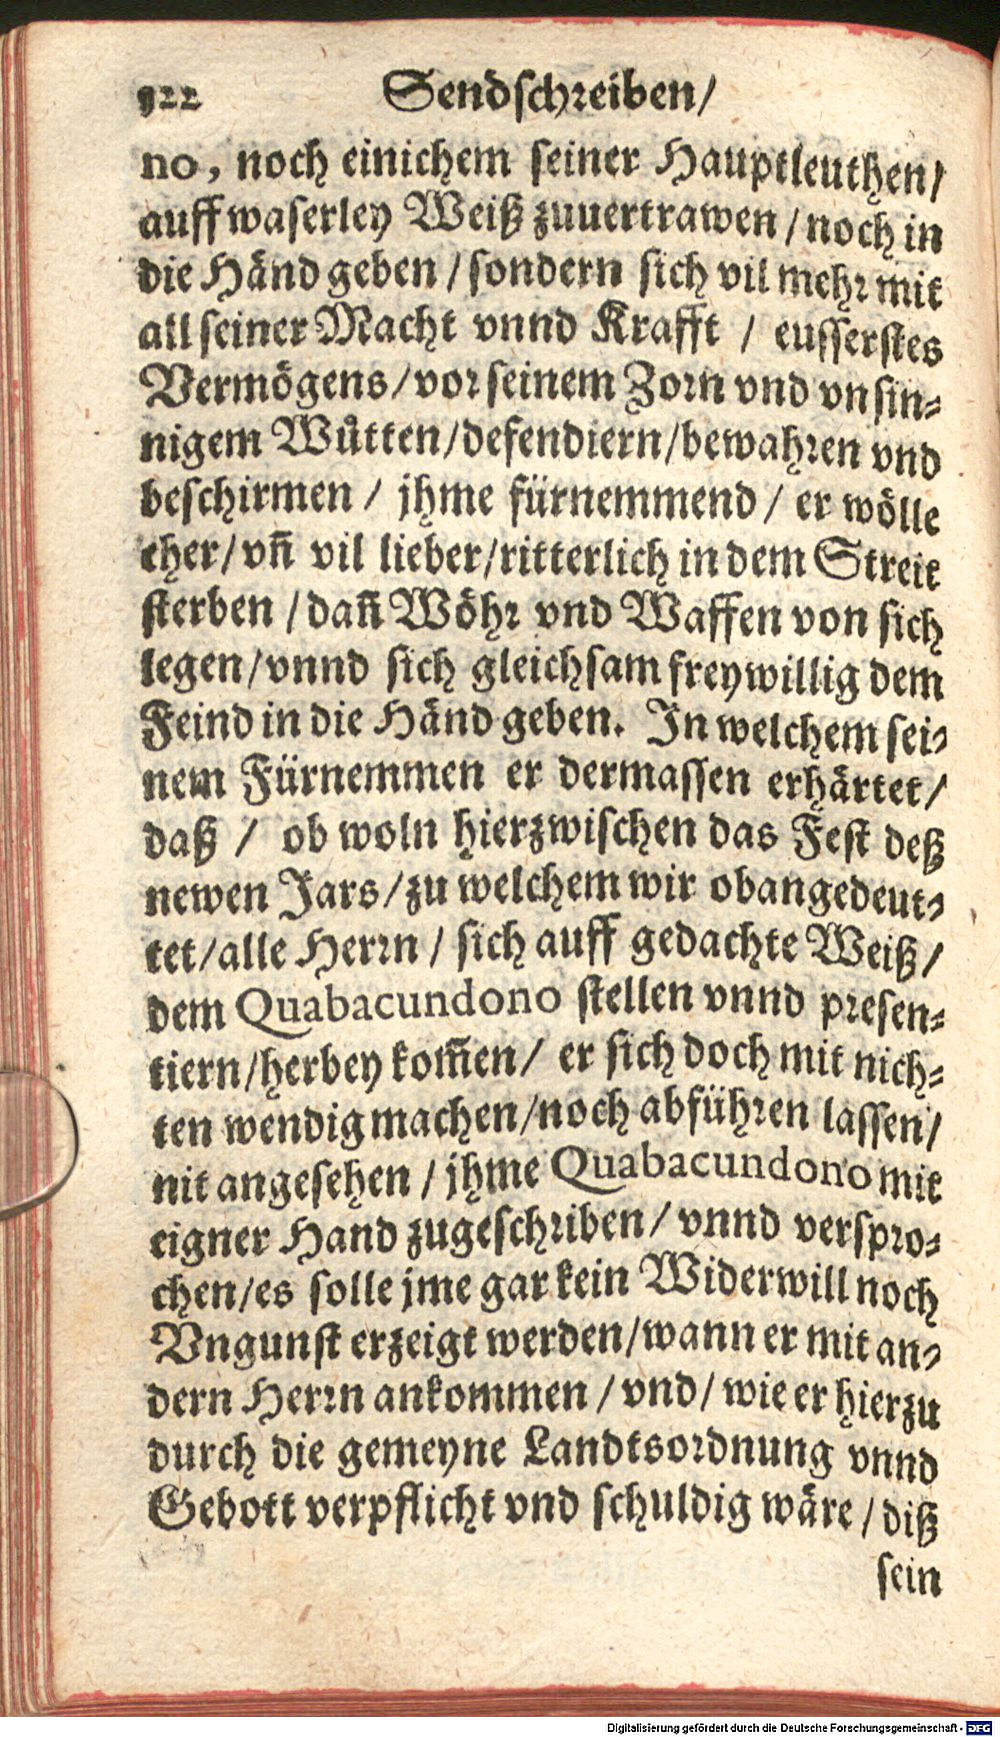 922 Sendschreiben/
no, noch einichem seiner Hauptleuthen/
auff waserley Weiß zuuertrawen / noch in
die Händ geben / sondern sich vil mehr mit
all seiner Macht vnnd Krafft / eusserstes
Vermögens/vor seinem Zorn vnd vnsin-
nigem Wůtten/defendiern/bewahren vnd
beschirmen / jhme fürnemmend / er wölle
eher/ vñ vil lieber/ritterlich in dem Streit
sterben / dañ Wöhr vnd Waffen von sich
legen/vnnd sich gleichsam freywillig dem
Feind in die Händ geben. In welchem sei-
nem Fürnemmen er dermassen erhärtet/
daß / ob woln hierzwischen das Fest deß
newen Jars/zu welchem wir obangedeut-
tet/alle Herrn / sich auff gedachte Weiß/
dem Quabacundono stellen vnnd presen-
tiern/herbey kom̃en/ er sich doch mit nich-
ten wendig machen/noch abführen lassen/
nit angesehen / jhme Quabacundono mit
eigner Hand zugeschriben/ vnnd verspro-
chen/es solle jme gar kein Widerwill noch
Vngunst erzeigt werden/wann er mit an-
dern Herrn ankommen / vnd/ wie er hierzu
durch die gemeyne Landtsordnung vnnd
Gebott verpflicht vnd schuldig wäre / diß
sein
Digitalisierung gefördert durch die Deutsche Forschungsgemeinschaft - DFG